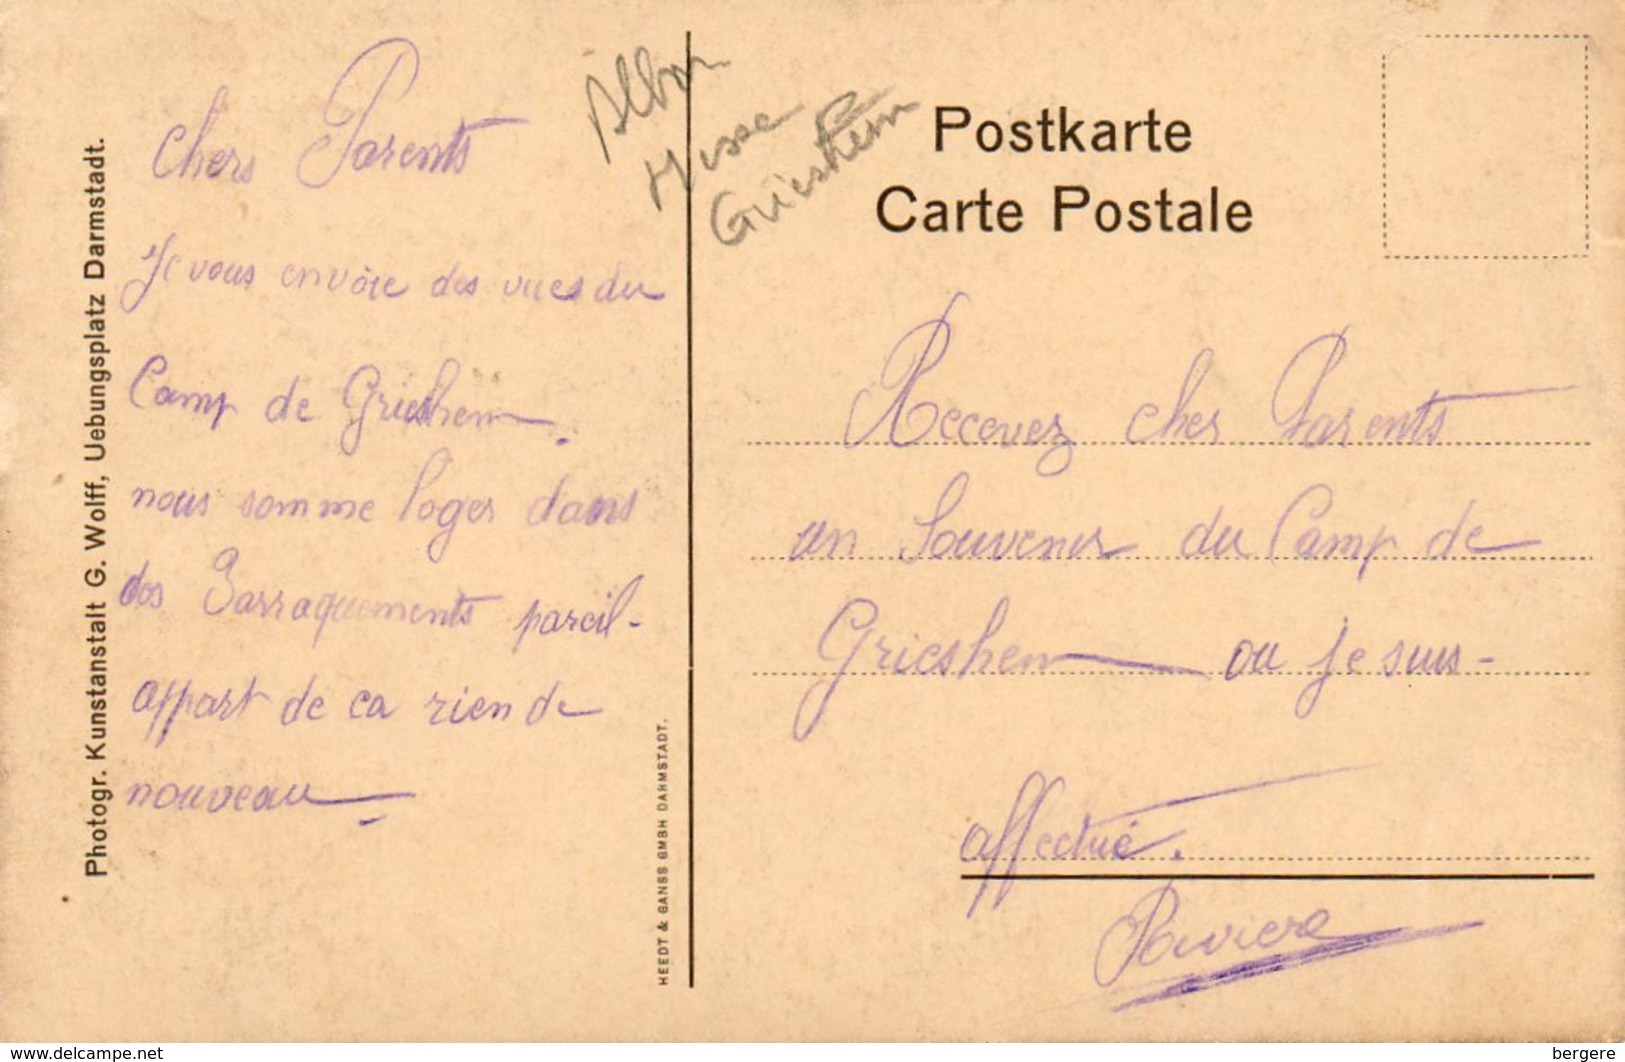 Photogr. Kunstanstalt G. Wolff, Uebungsplatz Darmstadt.
Chers Parents
Je vous envoie des vues du
Camp de Grieshem.
nous somme loger dans
des Barraquements pareil-
appart de ca rien de
nouveau
HEEDT & GANSS GMBH DARMSTADT.
Griesheim
Postkarte
Carte Postale
Recevez cher Parents
un Souvenir du Camp de
Grieshem ou je suis-
affectué.
www.delcampe.net
bergere